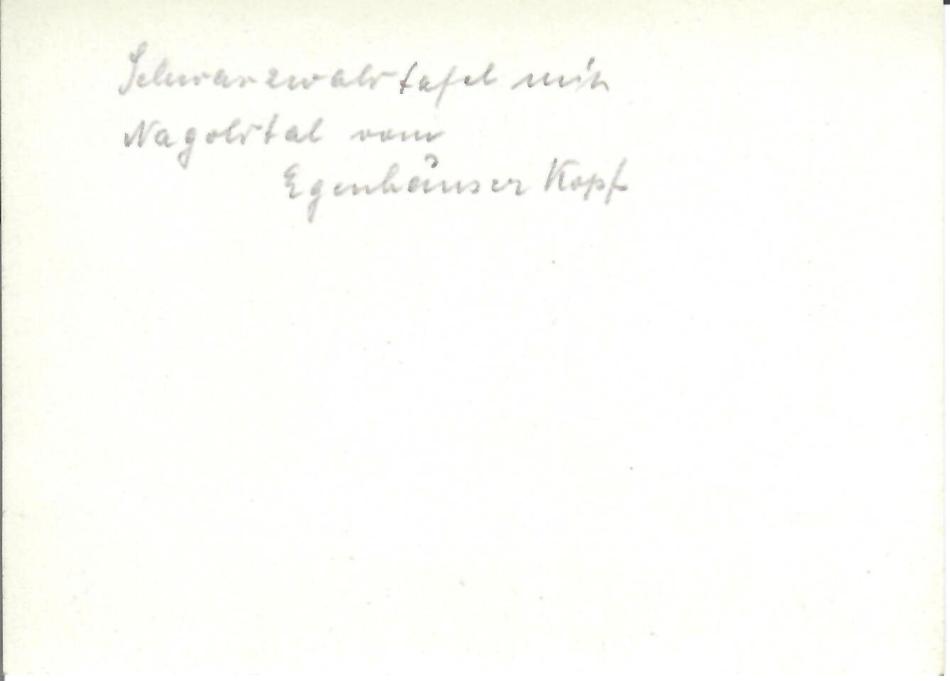 Schwarzwaldtafel mit
Nagoldtal vom
Egenhäuser Kopf